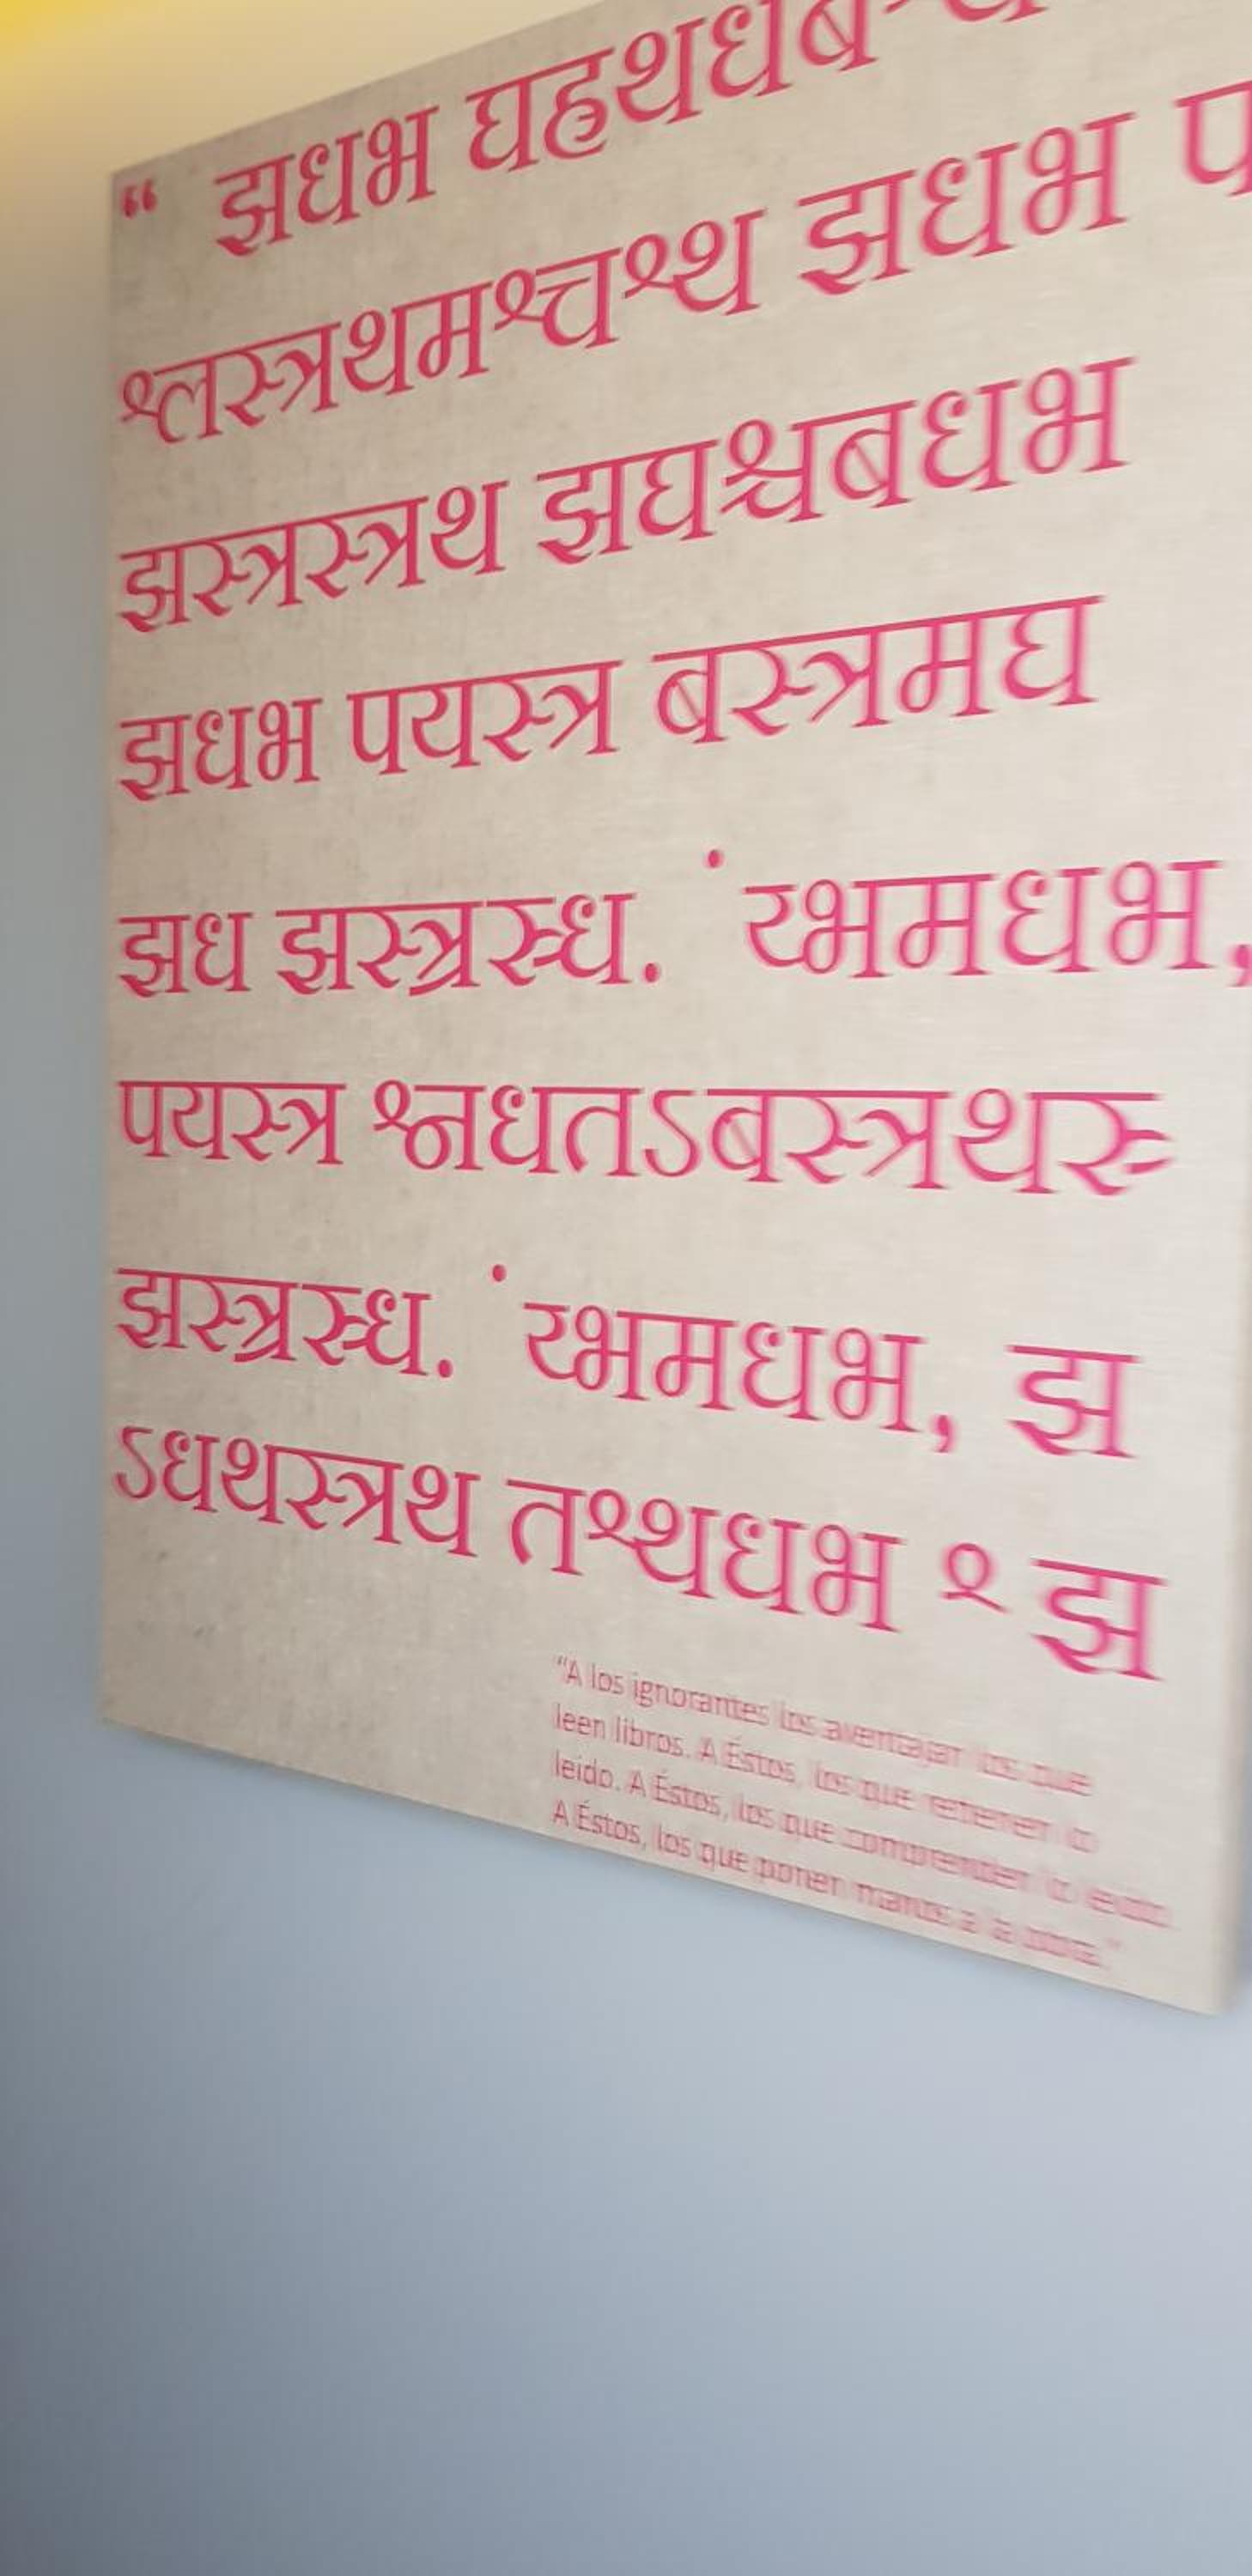 “ झधभ घहथधब
श्लस्त्रथमश्चश्थ झधभ प
झस्त्रस्त्रथ झघश्चबधभ
झधभ पयस्त्र बस्त्रमघ
झध झस्त्रस्ध. ंय्भमधभ,
पयस्त्र श्नधतऽबस्त्रथरु
झस्त्रस्ध. ंय्भमधभ, झ
ऽधथस्त्रथ तश्थधभ श् झ
“A los ignorantes los aventajan los que
leen libros. A Éstos, los que retienen lo
leído. A Éstos, los que comprenden lo leído.
A Éstos, los que ponen manos a la obra.”